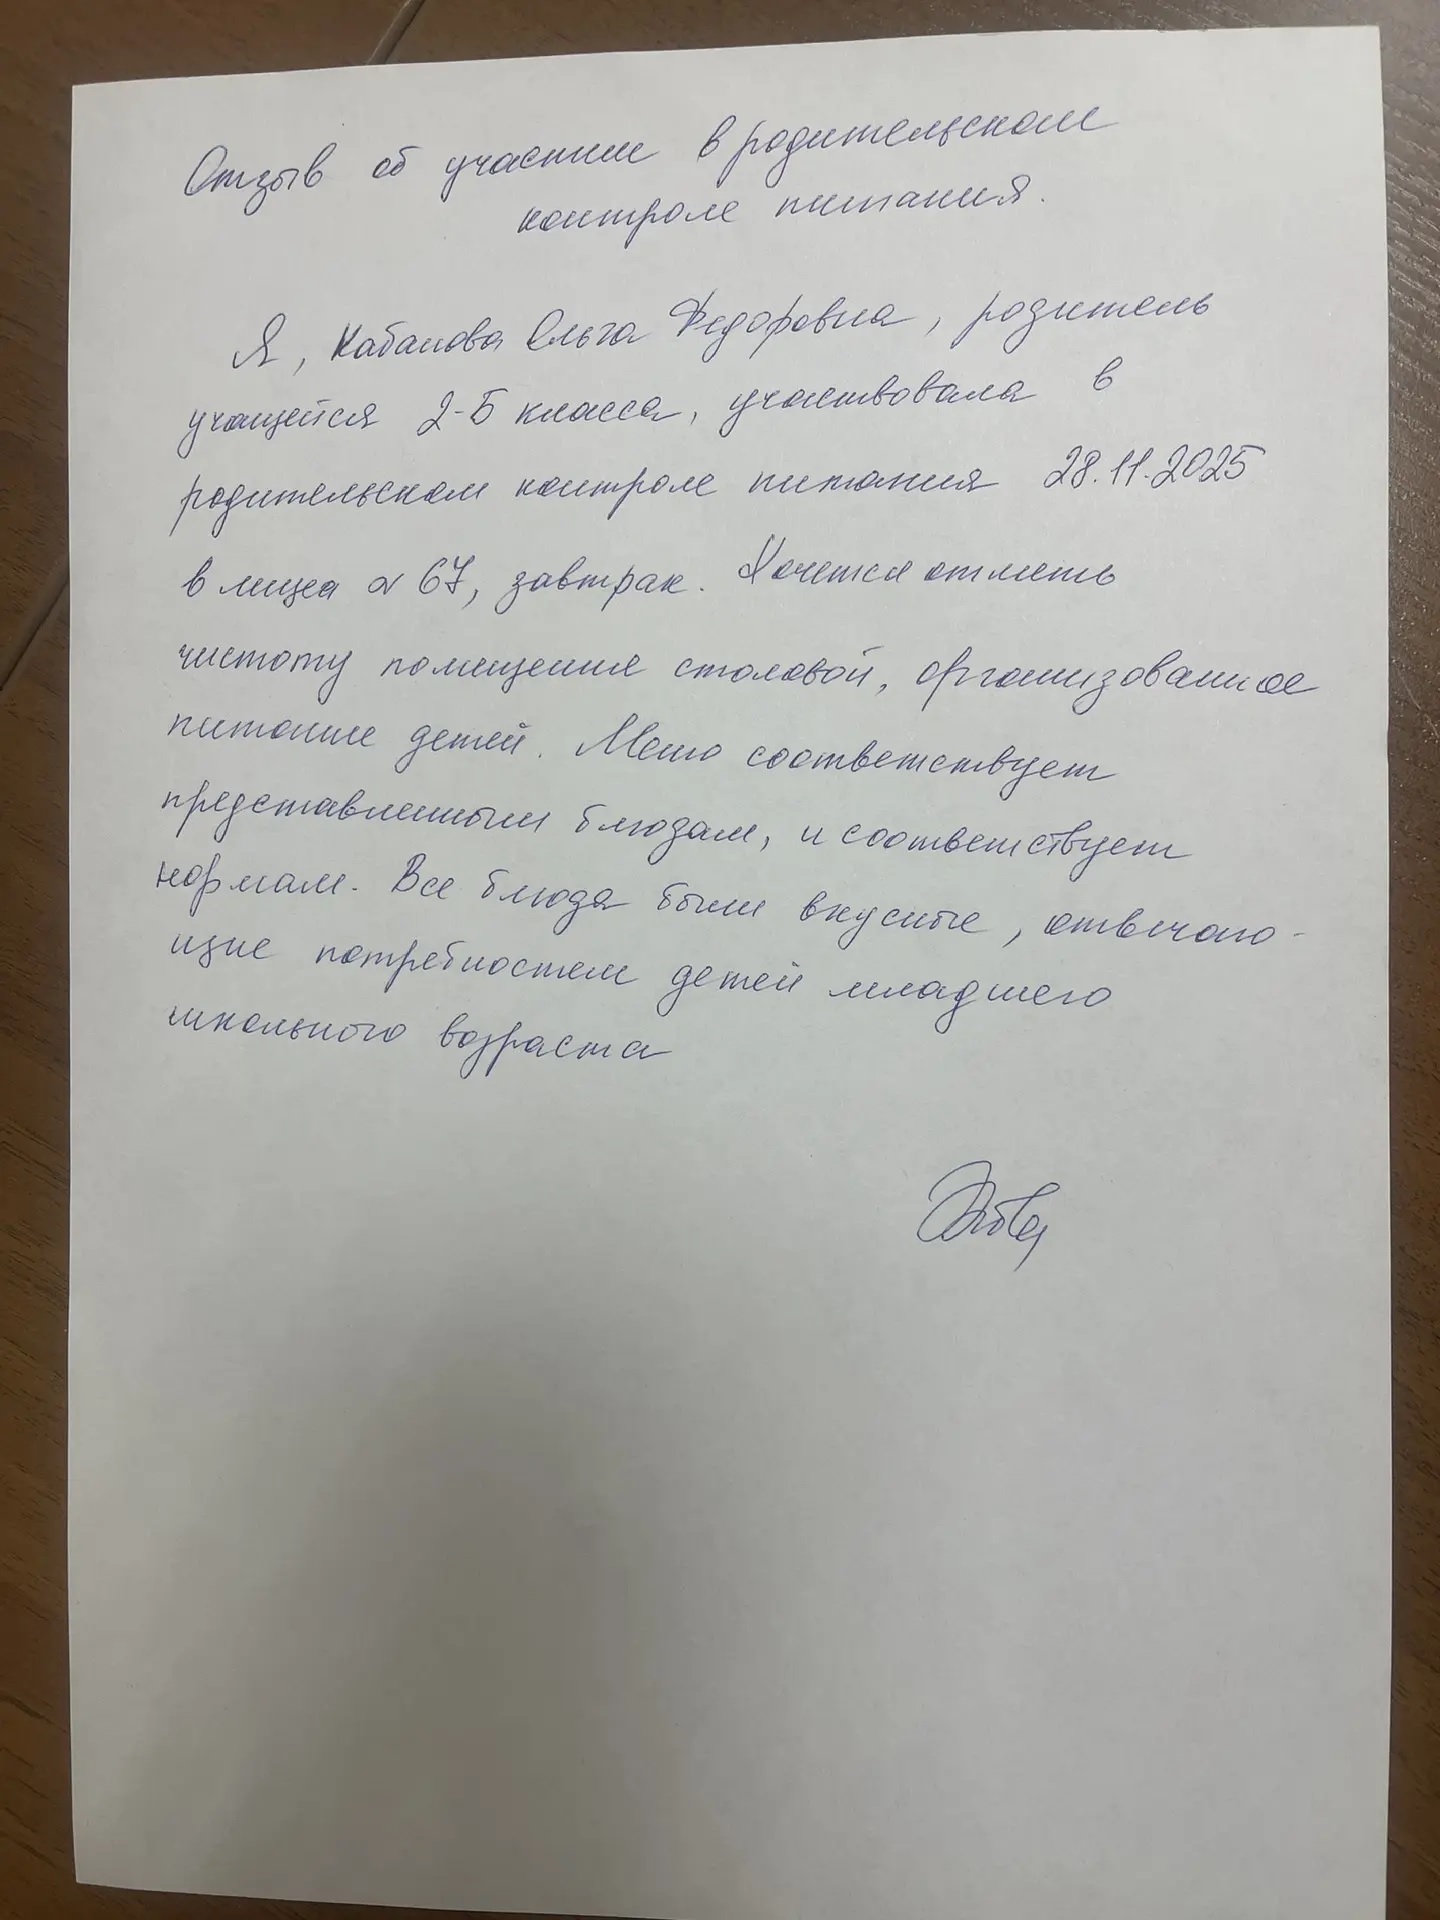 Отзыв об участии в родительском
контроле питания.
Я, Кабанова Ольга Федоровна, родитель
учащейся 2-Б класса, участвовала в
родительском контроле питания 28.11.2025
в лицеа № 67, завтрак. Хочется отметь
чистоту помещения столовой, организованное
питание детей. Меню соответствует
представленным блюдам, и соответствует
нормам. Все блюда были вкусные, отвечаю-
щие потребностям детей младшего
школьного возраста